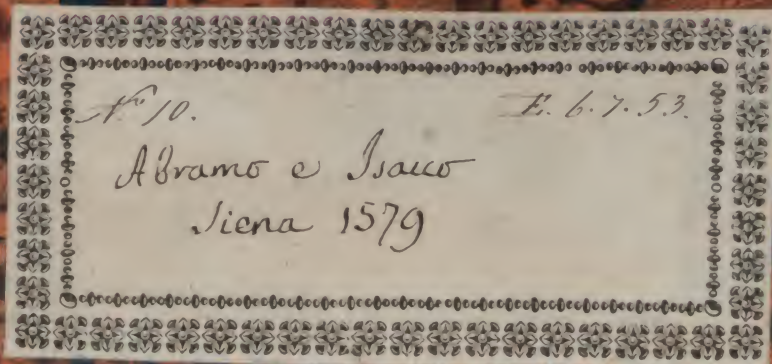 Nº 10. E. 6. 7. 53.
Abramo e Isacco
Siena 1579